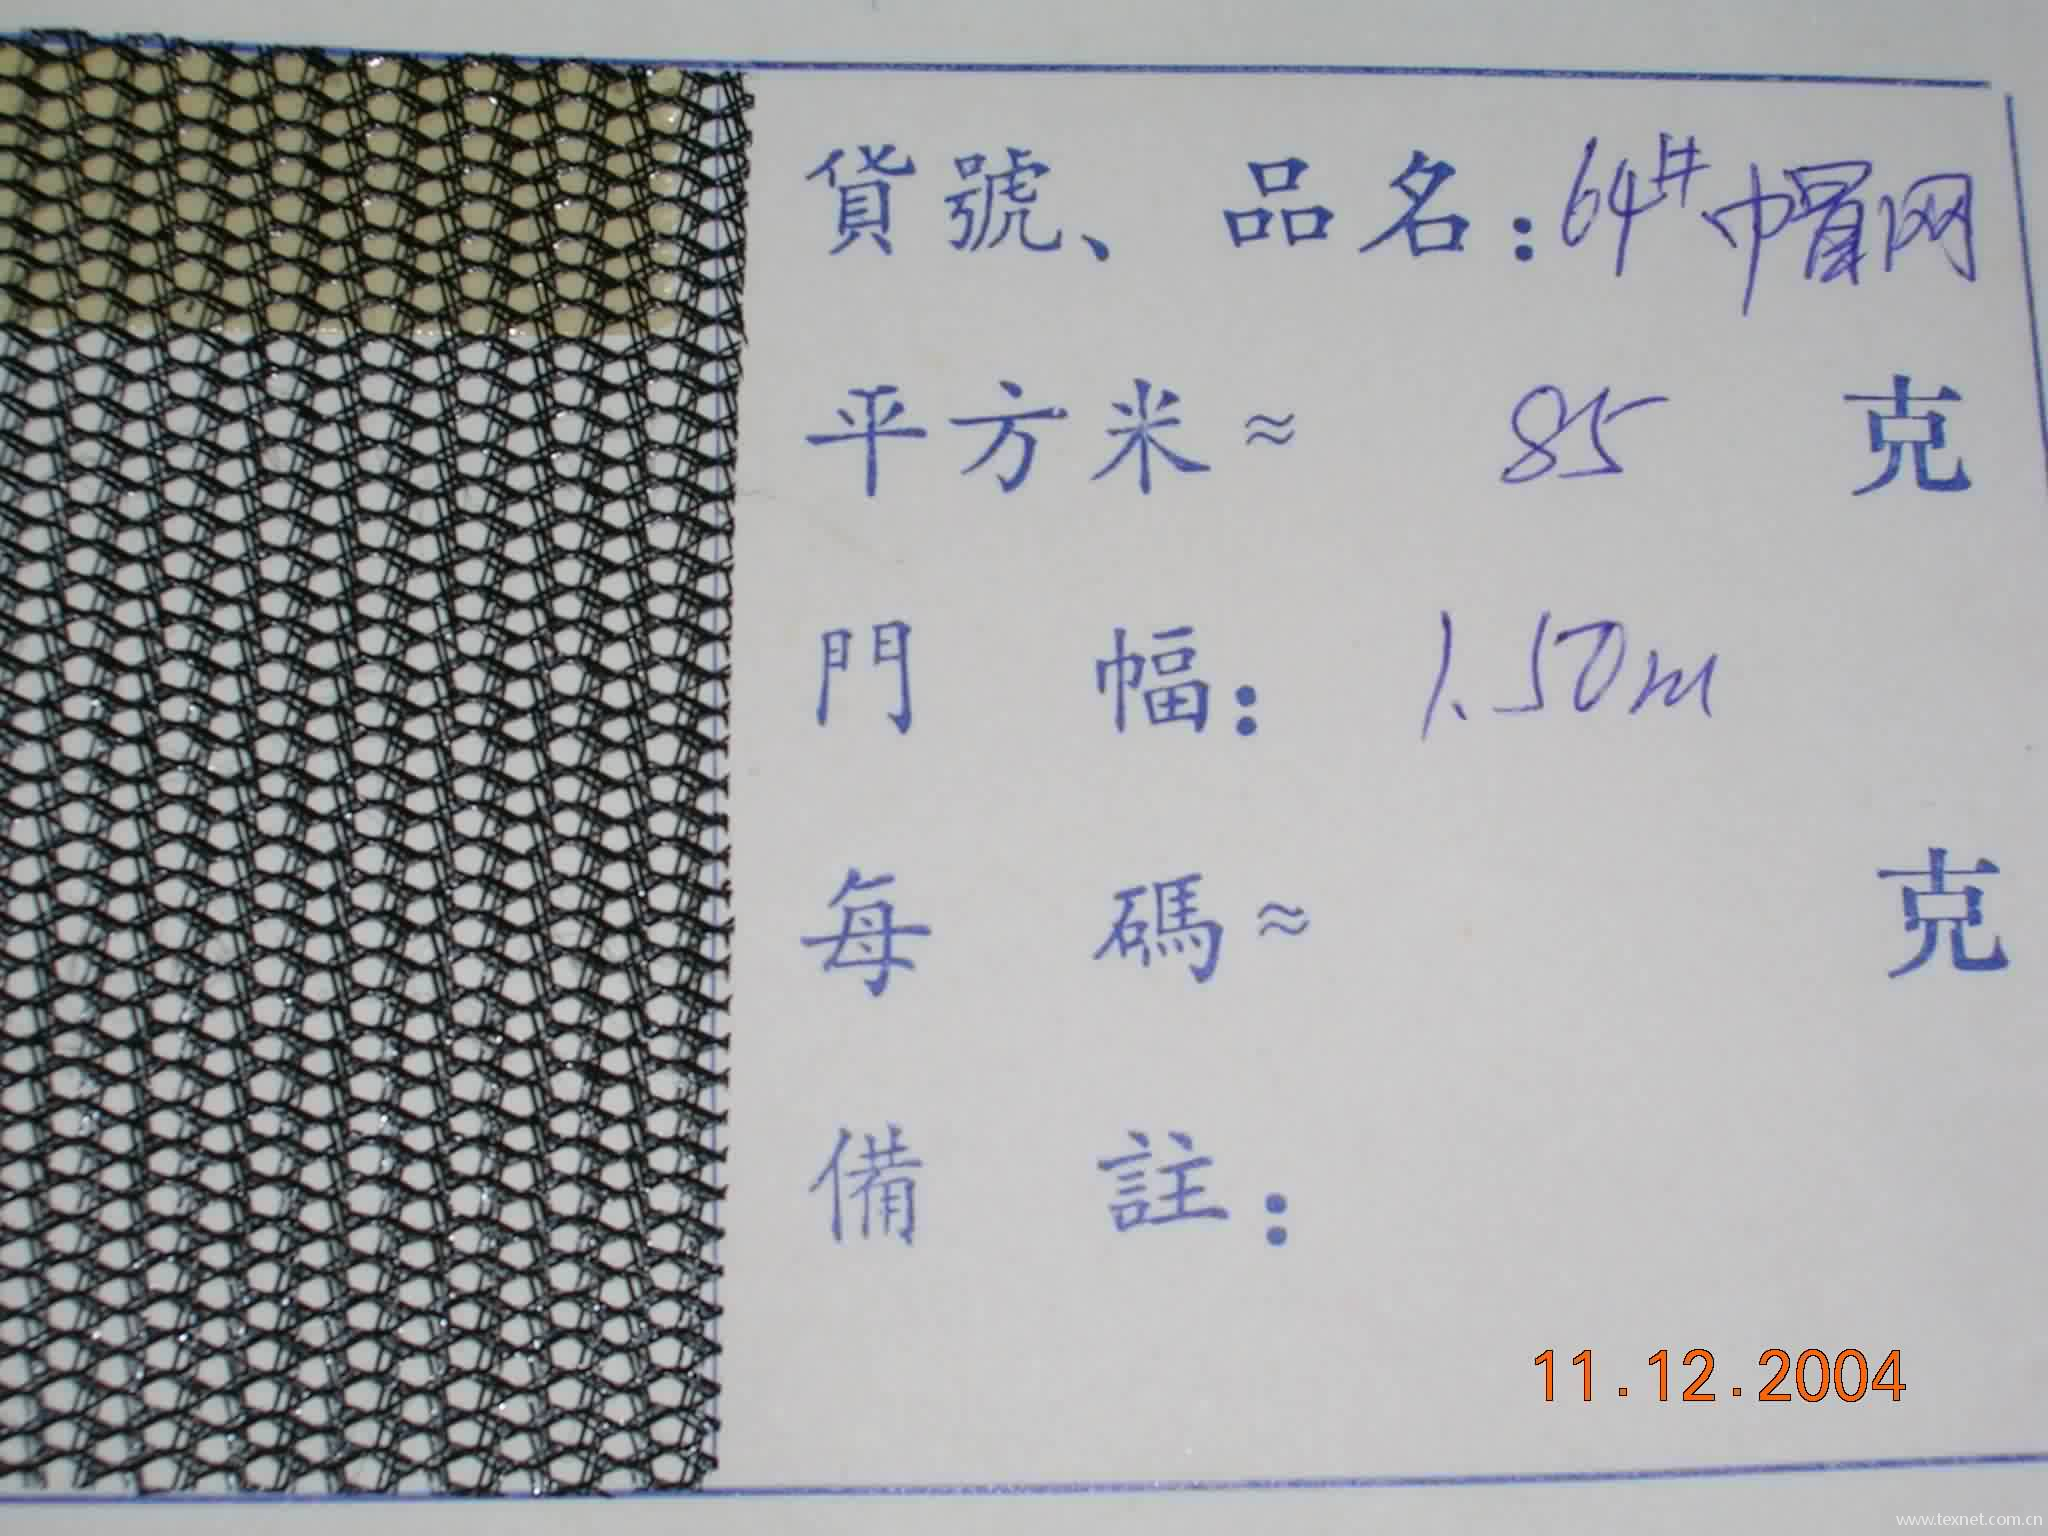 貨號、品名:64#帽网
平方米≈ 85 克
門幅: 1.50m
每碼≈ 克
備註:
11.12.2004
www.texnet.com.cn